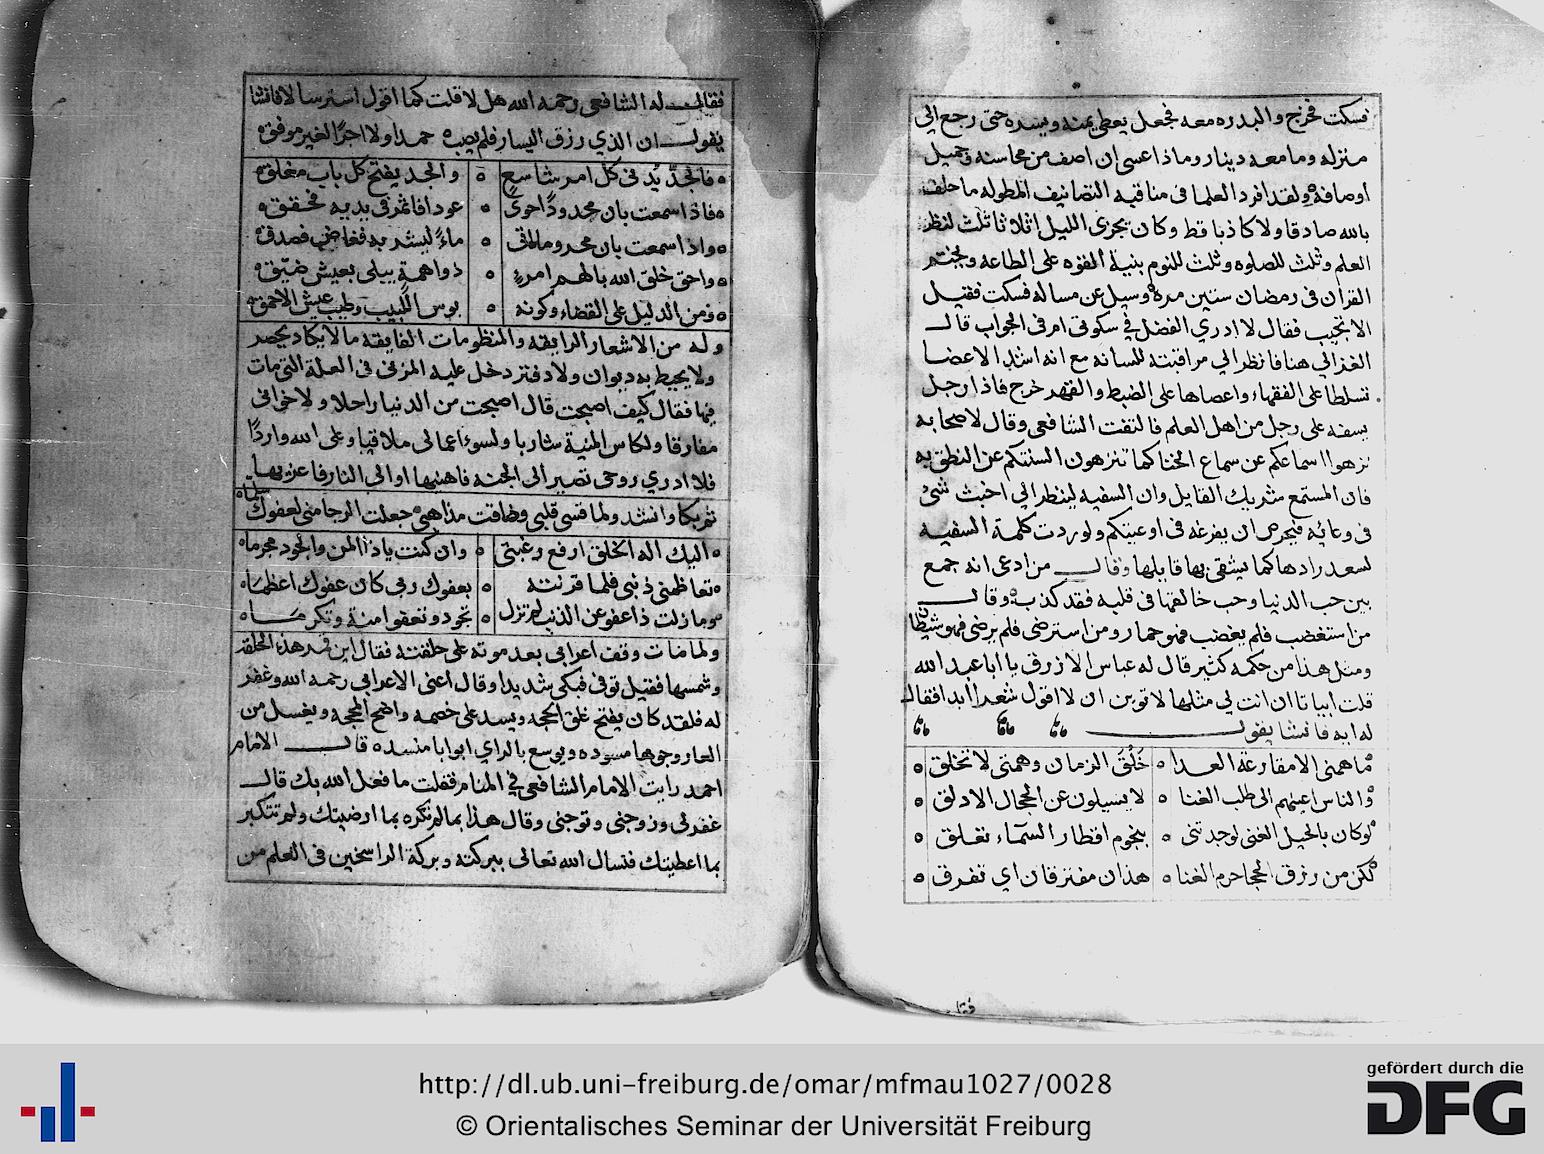 فسكت فخرج والبدره معه فجعل يعطي يمنه ويسره حتى رجع الي
منزله وما معه دينار وماذا عسى ان اصف من محاسنه وجميل
اوصافه ولقد افرد العلما فى مناقبه التصانيف المطوله ما حلف
بالله صادقا ولا كاذبا قط وكان يجزى الليل اثلاثا ثلث لنظر
العلم وثلث للصلوه وثلث للنوم بنية القوه على الطاعه ويختم
القران فى رمضان ستين مرة وسيل عن مساله فسكت فقيل
الا تجيب فقال لا ادري الفضل في سكوتى ام فى الجواب قال
الغزالي هنا فانظر الي مراقبته للسانه مع انه اشد الاعضا
تسلطا على الفقهاء واعصاها على الضبط والقهر خرج فاذا رجل
يسفه على رجل من اهل العلم فالتفت الشافعى وقال لاصحابه
نزهوا اسماعكم عن سماع الخنا كما تنزهون السنتكم عن النطق به
فان المستمع شريك القايل وان السفيه لينظر الي اخبث شئ
فى وعائه فيحرص ان يفرغه فى اوعيتكم ولو ردت كلمة السفيه
لسعد رادها كما يشقى بها قايلها وقال من ادعى انه جمع
بين حب الدنيا وحب خالقها فى قلبه فقد كذب وقال
من استغضب فلم يغضب فهو حمار ومن استرضى فلم يرضى فهو شيطان
ومثل هذا من حكمه كثير قال له عباس الازرق يا ابا عبد الله
قلت ابياتا ان انت لي مثلها لاتوبن ان لا اقول شعرا ابدا فقال
له ايه فانشا يقول
ما همتى الا مقارعة العدا خَلَقَ الزمان وهمتى لا تخلق
والناس اعينهم الى طلب الغنا لا يسيلون عن الحجال الادلق
لو كان بالحيل الغنى لوجدتنى بنجوم اقطار السماء تعلق
لكن من رزق الحجا حرم الغنا هذان مفترقان اي تفرق
فقال
فقال له الشافعى رحمه الله هل لا قلت كما اقول استرسالا فانشا
يقول ان الذي رزق اليسار فلم يصب حمدا ولا اجرا لغير موفق
فالجدّ يدني كل امر شاسع والجد يفتح كل باب مغلق
فاذا سمعت بان مجدودًا حوى عودا فاثمر فى يديه فحقق
واذا سمعت بان محروما اتى ماءً ليشربه فغاض فصدق
واحق خلق الله بالهم امرءٍ ذو اهمةٍ يبلى بعيش ضيّق
ومن الدليل على القضاء وكونه بوس اللبيب وطيب عيش الاحمق
وله من الاشعار الرايقه والمنظومات الفايقه ما لا يكاد يحصر
ولا يحيط به ديوان ولا دفتر دخل عليه المزنى فى العلة التى مات
فيها فقال كيف اصبحت قال اصبحت من الدنيا راحلا ولاخوانى
مفارقا ولكاس المنية شاربا ولسوء اعمالى ملاقيا وعلى الله واردًا
فلا ادري روحى تصير الى الجنه فاهنيها او الى النار فاعزيها
ثم بكا وانشد ولما قسى قلبى وضاقت مذاهبى جعلت الرجا منى لعفوك سلما
اليك اله الخلق ارفع رغبتى وان كنت ياذا المن والجود مجرما
تعاظمنى ذنبى فلما قرنته بعفوك ربى كان عفوك اعظما
وما زلت ذا عفو عن الذنب لم تزل تجود وتعفوا منة وتكرما
ولما مات وقف اعرابى بعد موته على حلقته فقال اين قمر هذه الحلقة
وشمسها فقيل توفى فبكى شديدا وقال اعنى الاعرابى رحمه الله وغفر
له فلقد كان يفتح غلق الحجه ويسد على خصمه واضح المحجه ويغسل من
العار وجوها مسوده ويوسع بالراي ابوابا منسده قال الامام
احمد رايت الامام الشافعى في المنام فقلت ما فعل الله بك قال
غفر لى وزوجنى وتوجنى وقال هذا بما لم تكره بما ارضيتك ولم تتكبر
بما اعطيتك فنسال الله تعالى ببركته وبركة الراسخين فى العلم من
http://dl.ub.uni-freiburg.de/omar/mfmau1027/0028
© Orientalisches Seminar der Universität Freiburg
gefördert durch die
DFG